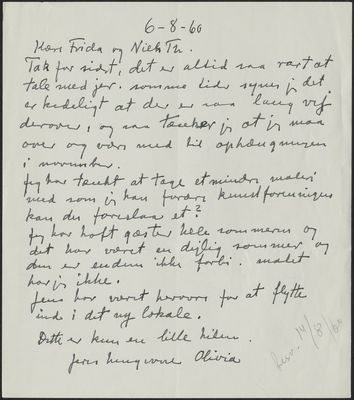 6-8-60
Kære Frida og Niels Th.
Tak for sidst, det er altid saa rart at
tale med jer. somme tider synes jeg det
er kedeligt at der er saa lang vej
derover, og saa tænker jeg at jeg maa
over og være med til ophængningen
i november.
Jeg har tænkt at tage et mindre maleri
med som jeg kan forære kunstforeningen
kan du foreslaa et?
Jeg har haft gæster hele sommeren og
det har været en dejlig sommer og
den er endnu ikke forbi. malet
har jeg ikke.
Jens har været herovre for at flytte
ind i det ny lokale.
Dette er kun en lille hilsen.
Jeres hengivne Olivia
besv. 14/8/60